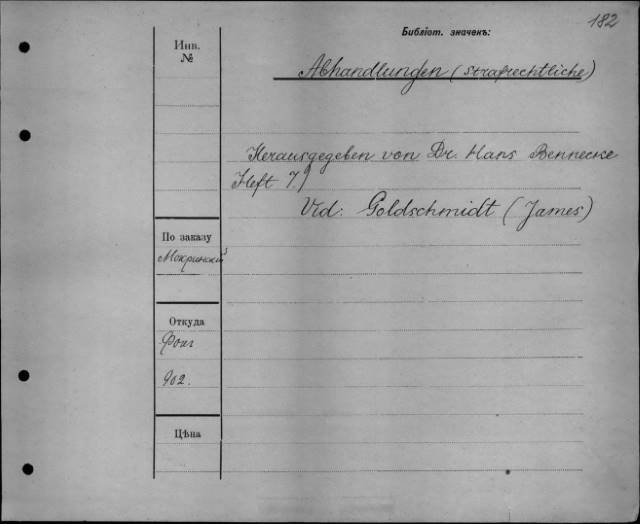 182
Библіот. значекъ:
Инв.
№
Abhandlungen (strafrechtliche)
Herausgegeben von Dr. Hans Bennecke
Heft 7.)
Vid: Goldschmidt (James)
По заказу
Мокринскій
Откуда
902.
Цѣна